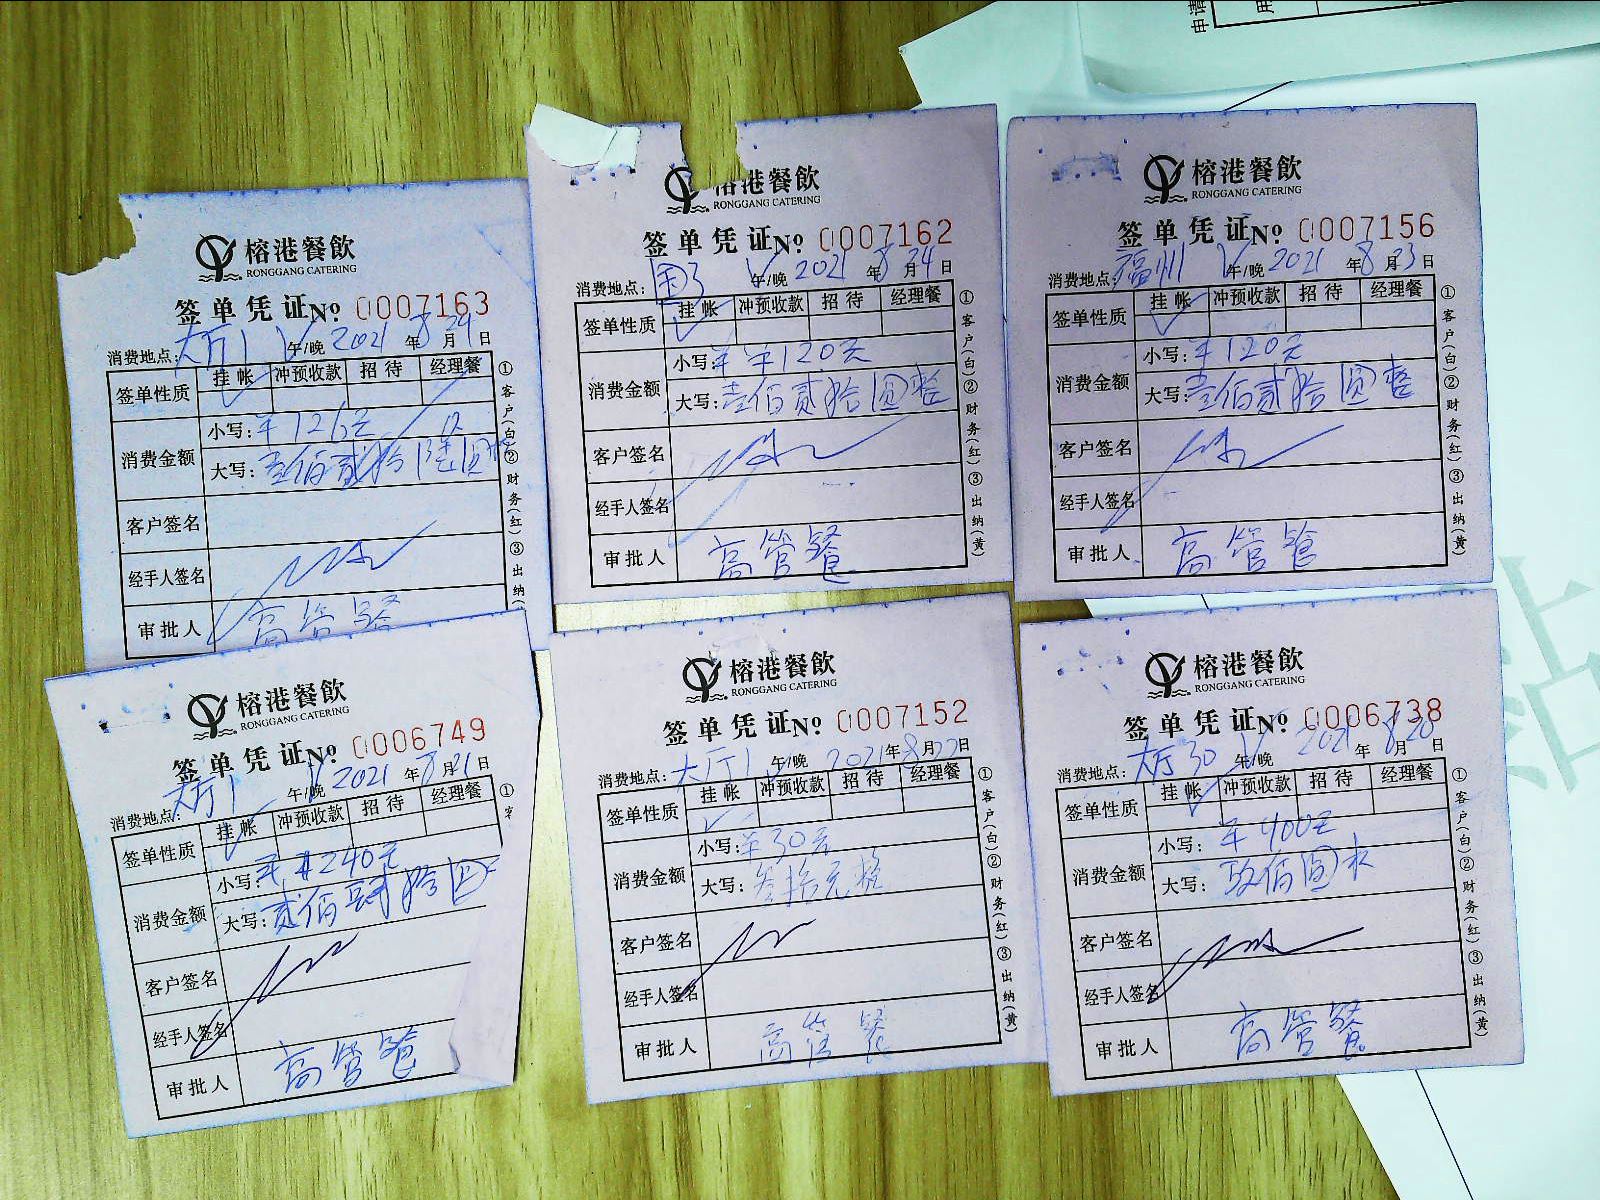 申请
用
榕港餐飲
RONGGANG CATERING
签单凭证No. 0007163
消费地点:大厅1 午/晚 2021年8月24日
签单性质 挂帐 冲预收款 招待 经理餐
消费金额 小写:¥126元
大写:壹佰贰拾陆圆
客户签名
经手人签名
审批人 高管餐
①客户(白)②财务(红)③出纳(
榕港餐飲
RONGGANG CATERING
签单凭证No. 0007162
消费地点: 午/晚 2021年8月24日
签单性质 挂帐 冲预收款 招待 经理餐
消费金额 小写:¥120元
大写:壹佰贰拾圆整
客户签名
经手人签名
审批人 高管餐
①客户(白)②财务(红)③出纳(黄)
榕港餐飲
RONGGANG CATERING
签单凭证No. 0007156
消费地点:福州 午/晚 2021年8月23日
签单性质 挂帐 冲预收款 招待 经理餐
消费金额 小写:¥120元
大写:壹佰贰拾圆整
客户签名
经手人签名
审批人 高管餐
①客户(白)②财务(红)③出纳(黄)
榕港餐飲
RONGGANG CATERING
签单凭证No. 0006749
消费地点:大厅1 午/晚 2021年8月21日
签单性质 挂帐 冲预收款 招待 经理餐
消费金额 小写:¥240元
大写:贰佰肆拾圆
客户签名
经手人签名
审批人 高管餐
①
榕港餐飲
RONGGANG CATERING
签单凭证No. 0007152
消费地点:大厅1 午/晚 2021年8月22日
签单性质 挂帐 冲预收款 招待 经理餐
消费金额 小写:¥30元
大写:叁拾元整
客户签名
经手人签名
审批人 高管餐
①客户(白)②财务(红)③出纳(黄)
榕港餐飲
RONGGANG CATERING
签单凭证No. 0006738
消费地点:大厅30 午/晚 2021年8月20日
签单性质 挂帐 冲预收款 招待 经理餐
消费金额 小写:¥400元
大写:佰圆
客户签名
经手人签名
审批人 高管餐
①客户(白)②财务(红)③出纳(黄)
站